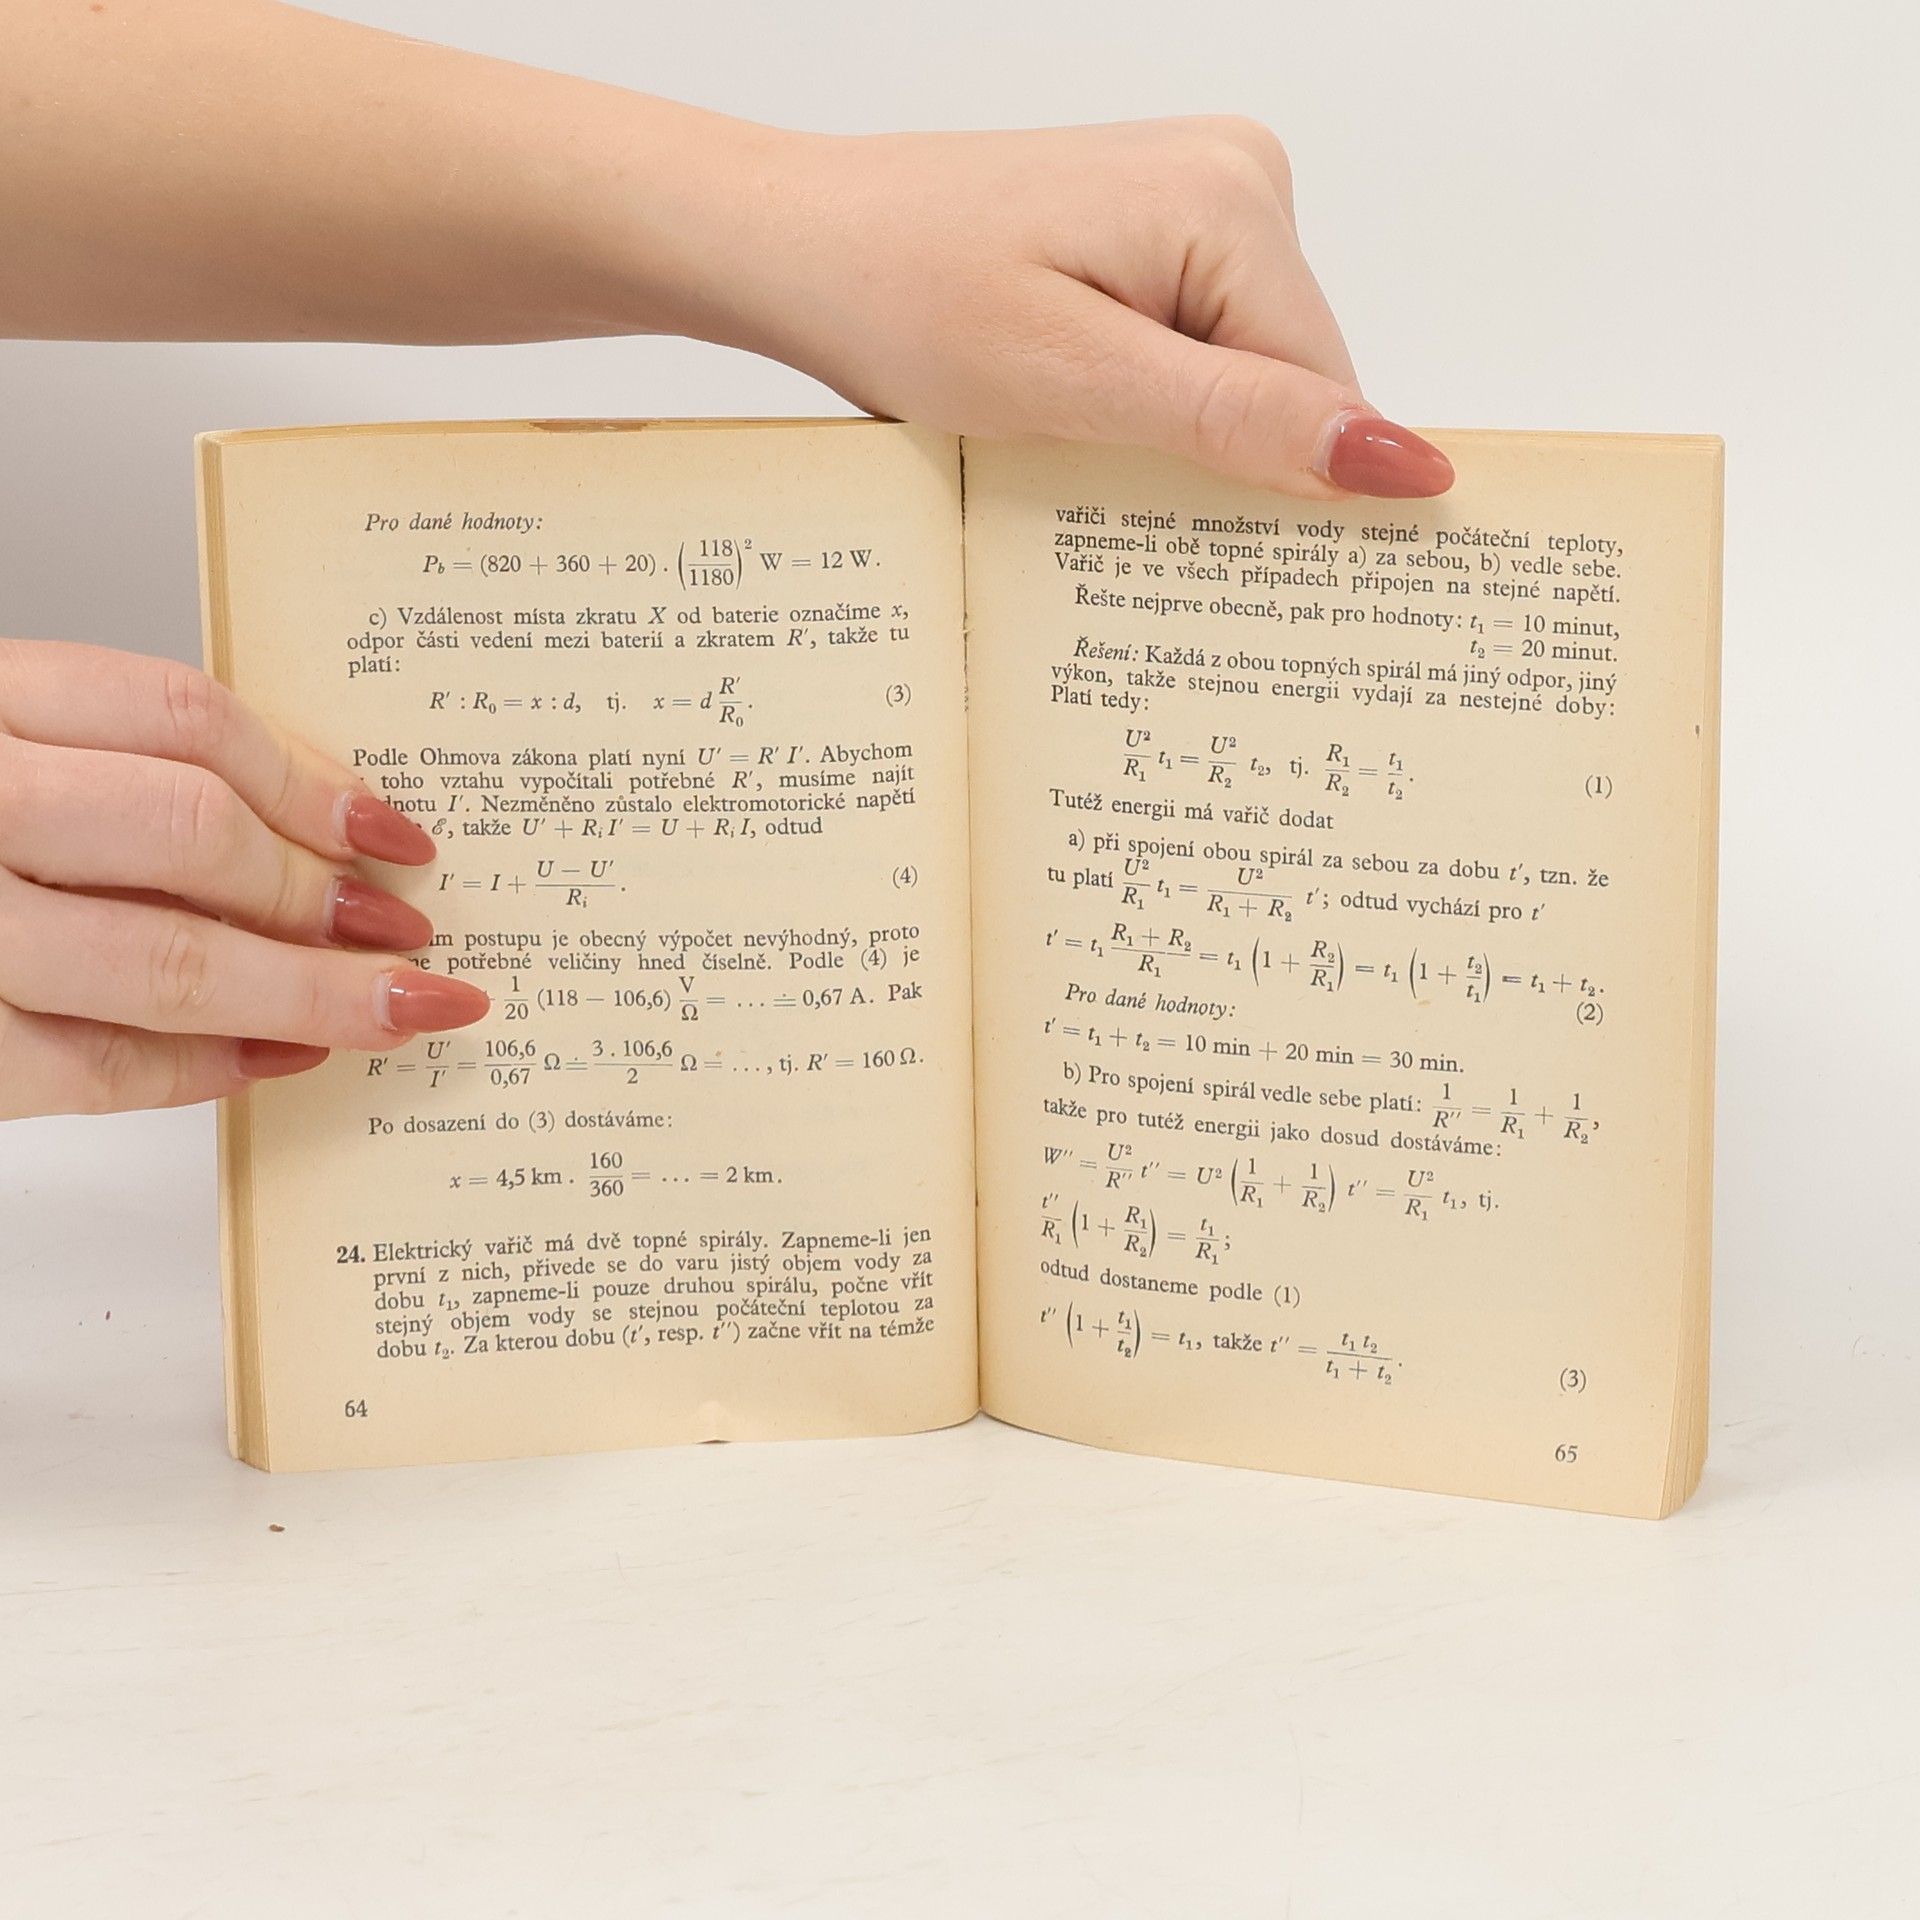 Pro dané hodnoty:
P_b = (820 + 360 + 20) . (118/1180)² W = 12 W.
c) Vzdálenost místa zkratu X od baterie označíme x,
odpor části vedení mezi baterií a zkratem R′, takže tu
platí:
R′ : R₀ = x : d, tj. x = d R′/R₀. (3)
Podle Ohmova zákona platí nyní U′ = R′ I′. Abychom
toho vztahu vypočítali potřebné R′, musíme najít
I′. Nezměněno zůstalo elektromotorické napětí
ℰ, takže U′ + Rᵢ I′ = U + Rᵢ I, odtud
I′ = I + (U − U′)/Rᵢ. (4)
postupu je obecný výpočet nevýhodný, proto
potřebné veličiny hned číselně. Podle (4) je
1/20 (118 − 106,6) V/Ω = ... ≐ 0,67 A. Pak
R′ = U′/I′ = 106,6/0,67 Ω ≐ 3 . 106,6/2 Ω = ..., tj. R′ = 160 Ω.
Po dosazení do (3) dostáváme:
x = 4,5 km . 160/360 = ... = 2 km.
24. Elektrický vařič má dvě topné spirály. Zapneme-li jen
první z nich, přivede se do varu jistý objem vody za
dobu t₁, zapneme-li pouze druhou spirálu, počne vřít
stejný objem vody se stejnou počáteční teplotou za
dobu t₂. Za kterou dobu (t′, resp. t″) začne vřít na témže
64
vařiči stejné množství vody stejné počáteční teploty,
zapneme-li obě topné spirály a) za sebou, b) vedle sebe.
Vařič je ve všech případech připojen na stejné napětí.
Řešte nejprve obecně, pak pro hodnoty: t₁ = 10 minut,
t₂ = 20 minut.
Řešení: Každá z obou topných spirál má jiný odpor, jiný
výkon, takže stejnou energii vydají za nestejné doby:
Platí tedy:
U²/R₁ t₁ = U²/R₂ t₂, tj. R₁/R₂ = t₁/t₂. (1)
Tutéž energii má vařič dodat
a) při spojení obou spirál za sebou za dobu t′, tzn. že
tu platí U²/R₁ t₁ = U²/(R₁ + R₂) t′; odtud vychází pro t′
t′ = t₁ (R₁ + R₂)/R₁ = t₁ (1 + R₂/R₁) = t₁ (1 + t₂/t₁) = t₁ + t₂.
(2)
Pro dané hodnoty:
t′ = t₁ + t₂ = 10 min + 20 min = 30 min.
b) Pro spojení spirál vedle sebe platí: 1/R″ = 1/R₁ + 1/R₂,
takže pro tutéž energii jako dosud dostáváme:
W″ = U²/R″ t″ = U² (1/R₁ + 1/R₂) t″ = U²/R₁ t₁, tj.
t″/R₁ (1 + R₁/R₂) = t₁/R₁;
odtud dostaneme podle (1)
t″ (1 + t₁/t₂) = t₁, takže t″ = t₁ t₂/(t₁ + t₂).
(3)
65